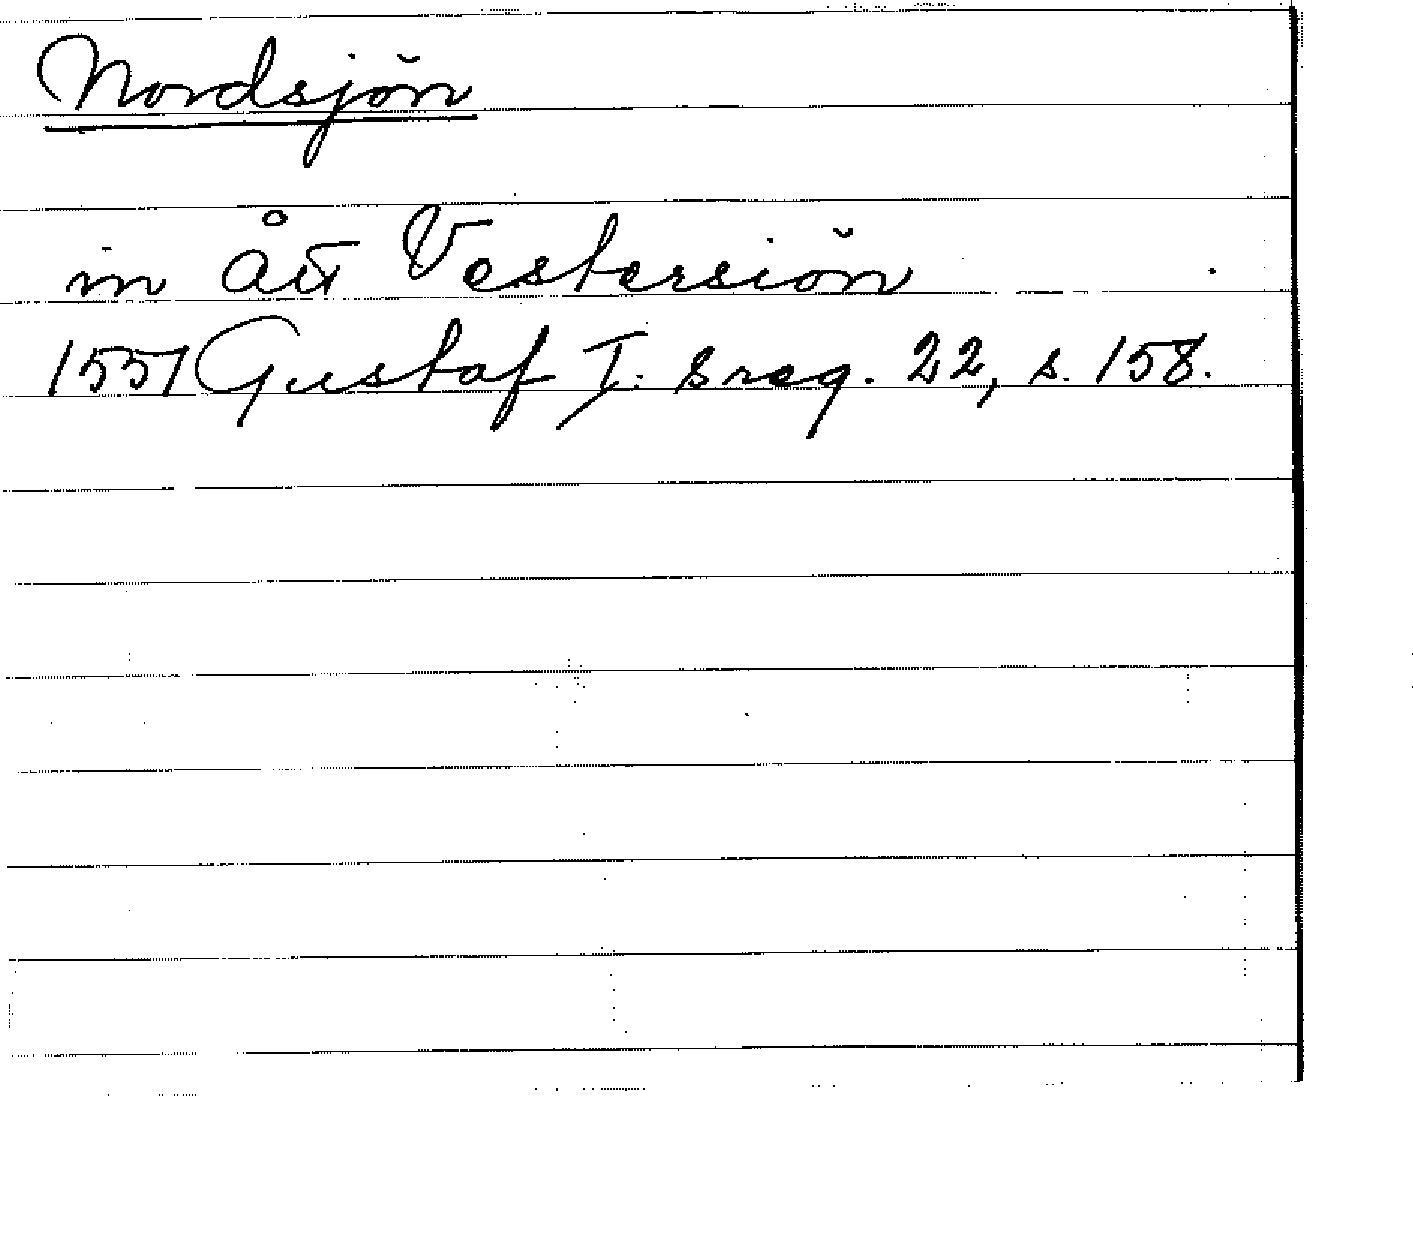 Nordsjön
in ått Vestersiön
1551 Gustaf I: s reg. 22, s. 158.